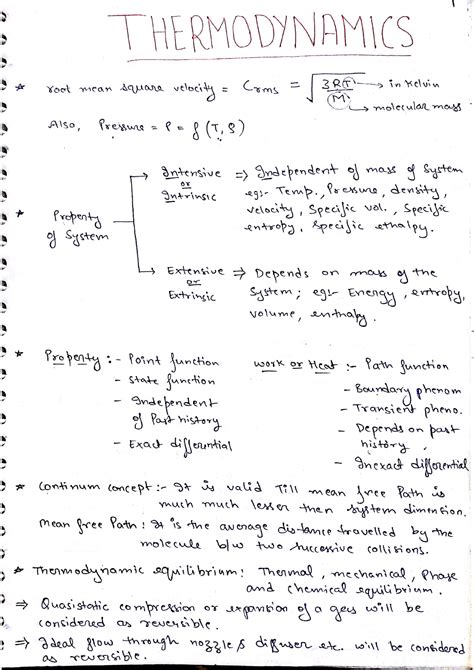 THERMODYNAMICS
* root mean square velocity = Crms = √(3RT/M) → in Kelvin
→ molecular mass
Also, Pressure = P = f (T, ρ)
* Property of System
Intensive or Intrinsic ⇒ Independent of mass of System
eg:- Temp., Pressure, density,
velocity, Specific vol., Specific
entropy, specific ethalpy.
Extensive or Extrinsic ⇒ Depends on mass of the
System; eg:- Energy, entropy,
volume, enthalpy.
* Property :- Point function
- State function
- Independent
of Past history
- Exact differential
work or Heat :- Path function
- Boundary phenom
- Transient pheno.
- Depends on past
history
- Inexact differential
* Continum concept:- It is valid Till mean free Path is
much much lesser then system dimention.
Mean free Path: It is the average distance travelled by the
molecule b/w two successive collisions.
* Thermodynamic equilibrium: Thermal, mechanical, Phase
and chemical equilibrium.
⇒ Quasistatic compression or expansion of a gas will be
considered as reversible.
⇒ Ideal flow through nozzle, diffuser etc. will be considered
as reversible.